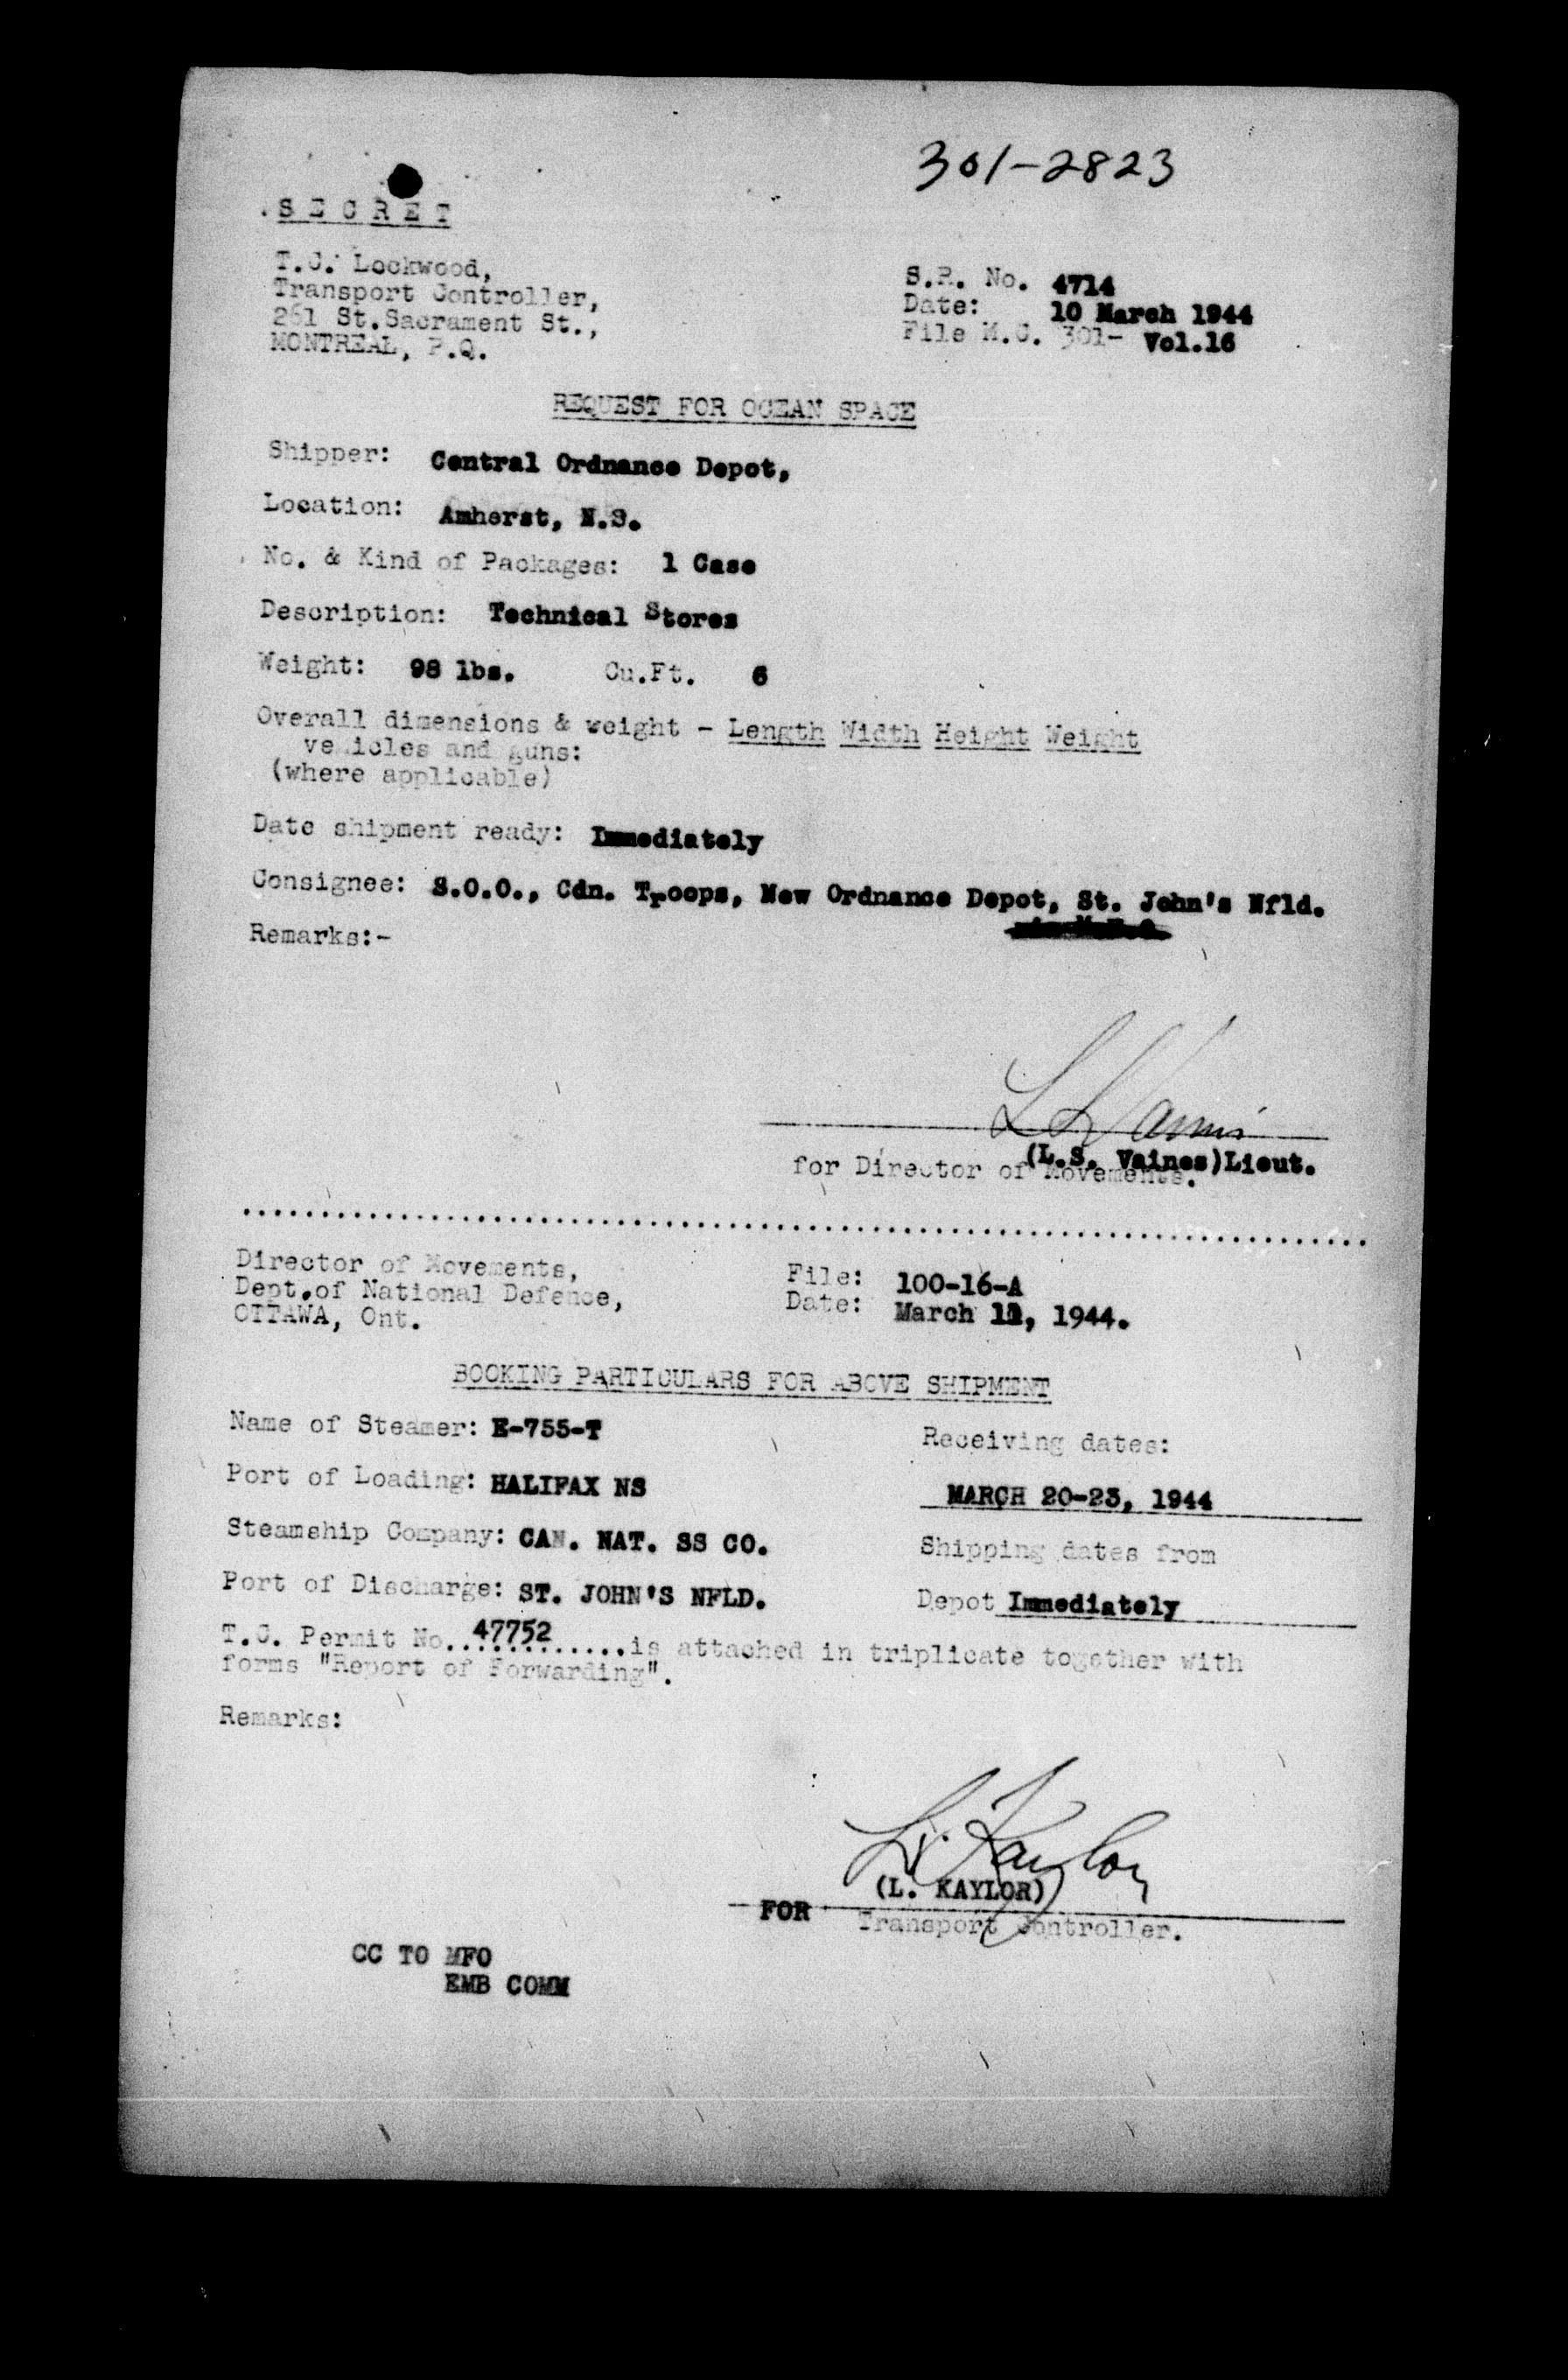 301-2823
SECRET
T.C. Lockwood,
Transport Controller,
261 St.Sacrament St.,
MONTREAL, P.Q.
S.R. No. 4714
Date: 10 March 1944
File M.C. 301- Vol.16
REQUEST FOR OCEAN SPACE
Shipper: Central Ordnance Depot,
Location: Amherst, N.S.
No. & Kind of Packages: 1 Case
Description: Technical Stores
Weight: 98 lbs. Cu.Ft. 6
Overall dimensions & weight - Length Width Height Weight
vehicles and guns:
(where applicable)
Date shipment ready: Immediately
Consignee: S.O.O., Cdn. Troops, New Ordnance Depot, St. John's Nfld.
Remarks:-
(L.S. Vaines)Lieut.
for Director of Movements.
Director of Movements,
Dept.of National Defence,
OTTAWA, Ont.
File: 100-16-A
Date: March , 1944.
BOOKING PARTICULARS FOR ABOVE SHIPMENT
Name of Steamer: E-755-T
Receiving dates:
Port of Loading: HALIFAX NS
MARCH 20-23, 1944
Steamship Company: CAN. NAT. SS CO.
Shipping dates from
Port of Discharge: ST. JOHN'S NFLD.
Depot Immediately
T.C. Permit No..47752......is attached in triplicate together with
forms "Report of Forwarding".
Remarks:
L. Kaylor
(L. KAYLOR)
FOR Transport Controller.
CC TO MFO
EMB COMM